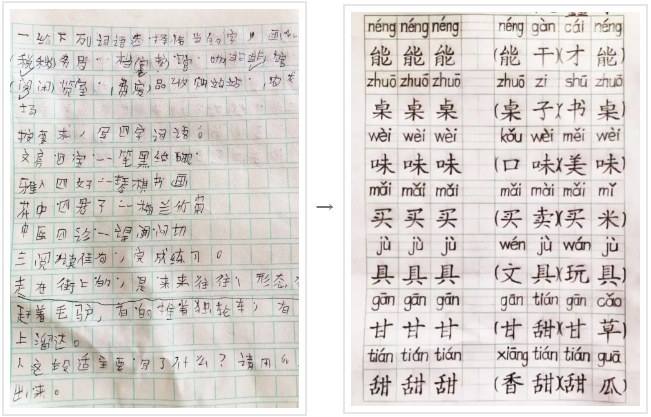 一给下列词语选择恰当的字，画
场
按要求，写四字词语。
文房四宝——笔墨纸砚
雅人四好——琴棋书画
花中四君子——梅兰竹菊
中医四诊——望闻问切
三阅读佳句，完成练习。
走在街上的，是来来往往，形态
赶着毛驴，有的推着独轮车，有
上溜达。
出来。
→
néng néng néng néng gàn cái néng
能 能 能 (能 干)(才 能)
zhuō zhuō zhuō zhuō zi shū zhuō
桌 桌 桌 (桌 子)(书 桌)
wèi wèi wèi kǒu wèi měi wèi
味 味 味 (口 味)(美 味)
mǎi mǎi mǎi mǎi mài mǎi mǐ
买 买 买 (买 卖)(买 米)
jù jù jù wén jù wán jù
具 具 具 (文 具)(玩 具)
gān gān gān gān tián gān cǎo
甘 甘 甘 (甘 甜)(甘 草)
tián tián tián xiāng tián tián guā
甜 甜 甜 (香 甜)(甜 瓜)